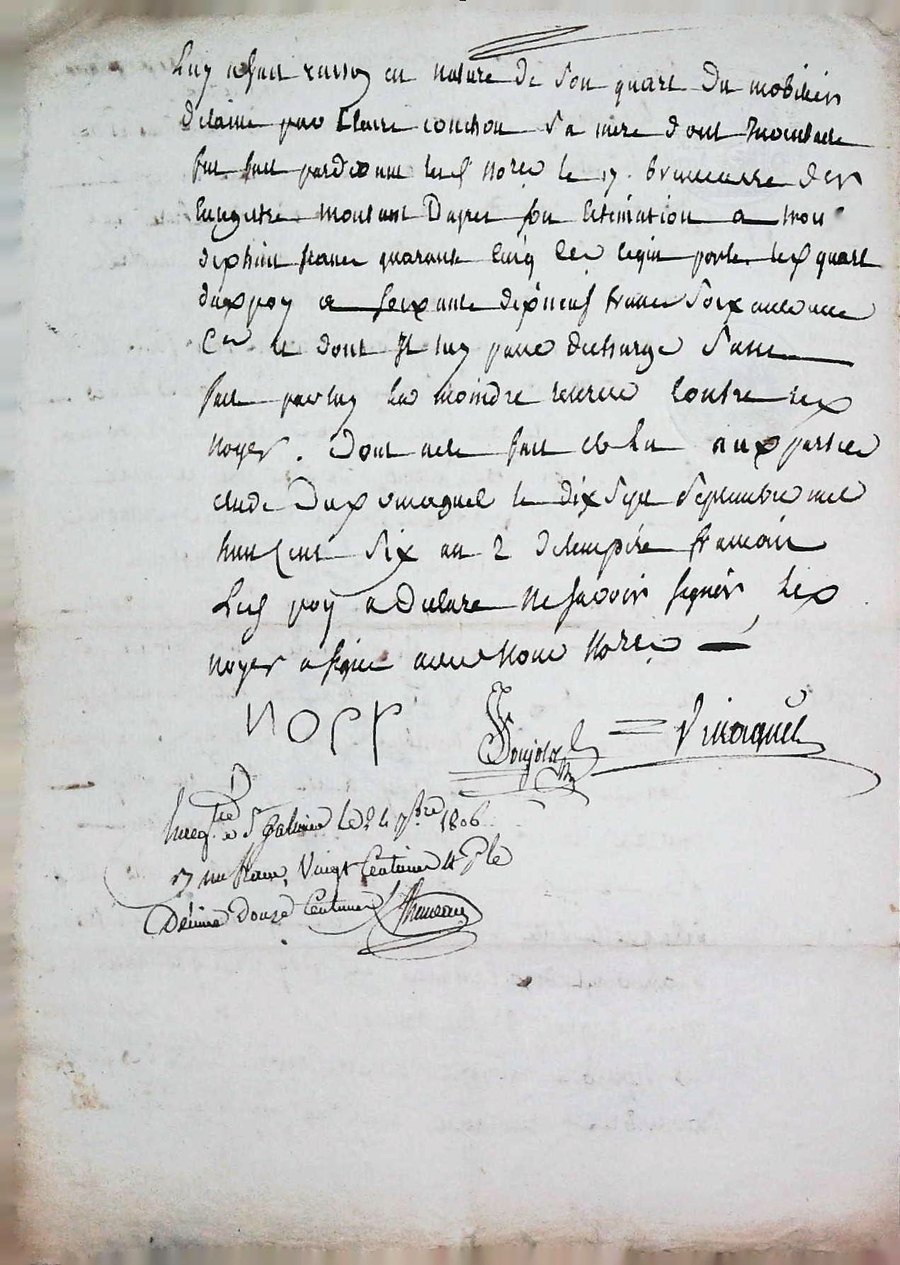 Luy a fait raison en nature de son quart du mobilier
delaissé par Claire conchon sa mere dont Inventaire
fut fait pardevant led Notre le 17 brumaire der
Enregistré montant Dapres son Estimation a trois
dixhuit francs quarante Cinq Ces le quart
a soixante dixneuf francs soixante
Ces et dont Il luy passe decharge sans
par luy la moindre reserve Contre led
noyer. Dont acte fait et lu aux parties
Etude Dud vinaguet le dix Sept Septembre mil
huit Cent Six an 2 de lempire francais
Led poy a Declaré Ne savoir signer Led
noyer a signé avec Nous Notre
Vinaguet
Enregtré a St Galmier Le 24 7bre 1806.
un franc Vingt Centimes
Décime Douze Centimes